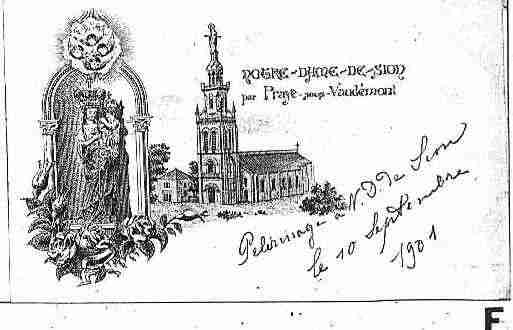 NOTRE-DAME-DE-SION
par Praye-sous-Vaudémont
Pelerinage à N. D. de Sion
le 10 Septembre
1901
F